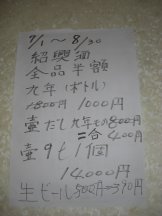 7/1〜8/30
紹興酒
全品半額
九年(ボトル)
1800円 1000円
壷だし九年もの800円
一合400円
壷9ℓ1個
14000円
生ビール500円→390円